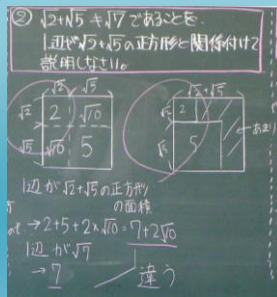 ② √2+√5≠√7であることを、
1辺が√2+√5の正方形と関係付けて
説明しなさい。
√2 √5
√2 2 √10
√5 √10 5
√2+√5
2
√5 5
あまり
1辺が√2+√5の正方形
の面積
→2+5+2×√10=7+2√10
1辺が√7
→7
違う